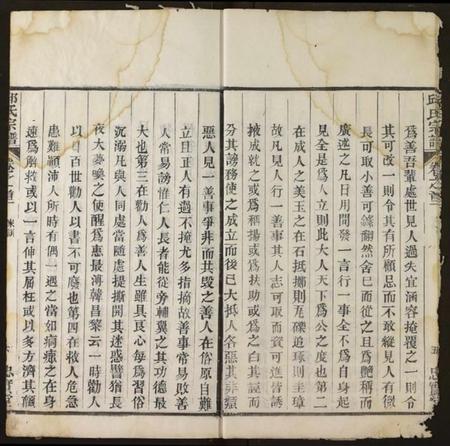 爲善吾輩處世見人過失宜涵容掩覆之一則令
其可改一則令其有所顧忌而不敢縱見人有微
長可取小善可錄翻然舍己而從之且爲艷稱而
廣述之凡日用間發一言行一事全不爲自身起
見全是爲人立則此大人天下爲公之度也第二
在成人之美玉之在石抵擲則瓦礫追琢則圭璋
故凡見人行一善事其人志可取而資可進皆誘
掖成就之或爲稱揚或爲扶助或爲之白其誣而
分其謗務使之成立而後已大抵人各惡其非類
惡人見一善事爭非而共毀之善人在俗原自難
立且正人有過不掩尤多指摘故善事常易敗善
人常易謗惟仁人長者能從旁輔翼之其功德最
大也第三在勸人爲善人生雖具良心每爲習俗
沉溺凡與人同處當隨處提撕開其迷惑譬猶長
夜大夢喚之使醒爲惠最溥韓昌黎云一時勸人
以口百世勸人以書不可廢也第四在救人危急
患難顛沛人所時有偶一遇之當如痌瘝之在身
速爲解救或以一言伸其屈枉或以多方濟其顛
邱氏宗譜